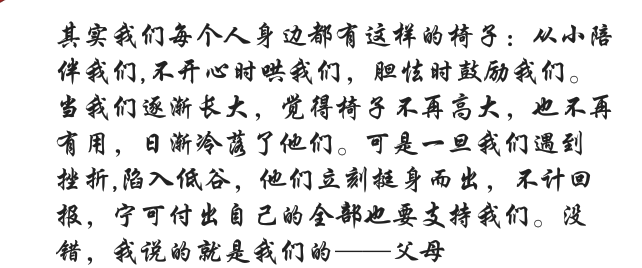 其实我们每个人身边都有这样的椅子：从小陪
伴我们,不开心时哄我们，胆怯时鼓励我们。
当我们逐渐长大，觉得椅子不再高大，也不再
有用，日渐冷落了他们。可是一旦我们遇到
挫折,陷入低谷，他们立刻挺身而出，不计回
报，宁可付出自己的全部也要支持我们。没
错，我说的就是我们的——父母